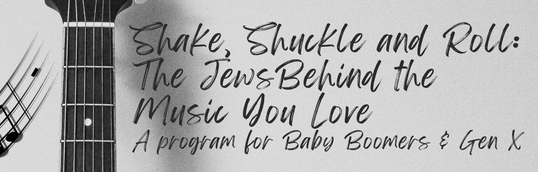 Shake, Shuckle and Roll:
The JewsBehind the
Music You Love
A program for Baby Boomers & Gen X